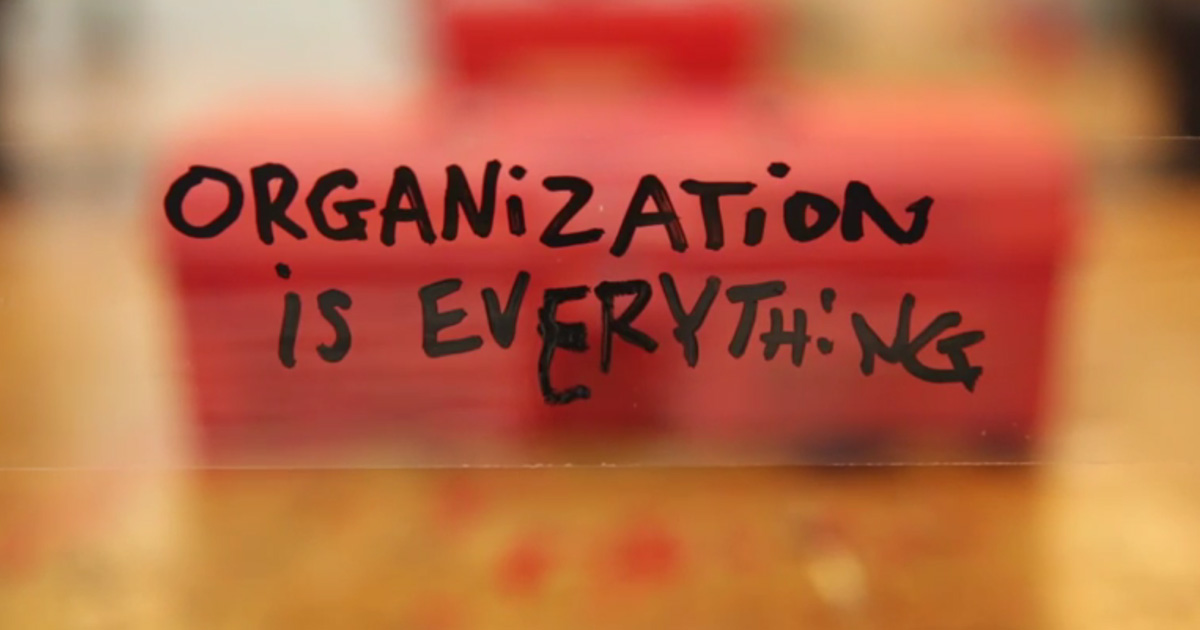 ORGANiZATiON
iS EVERYTHiNG